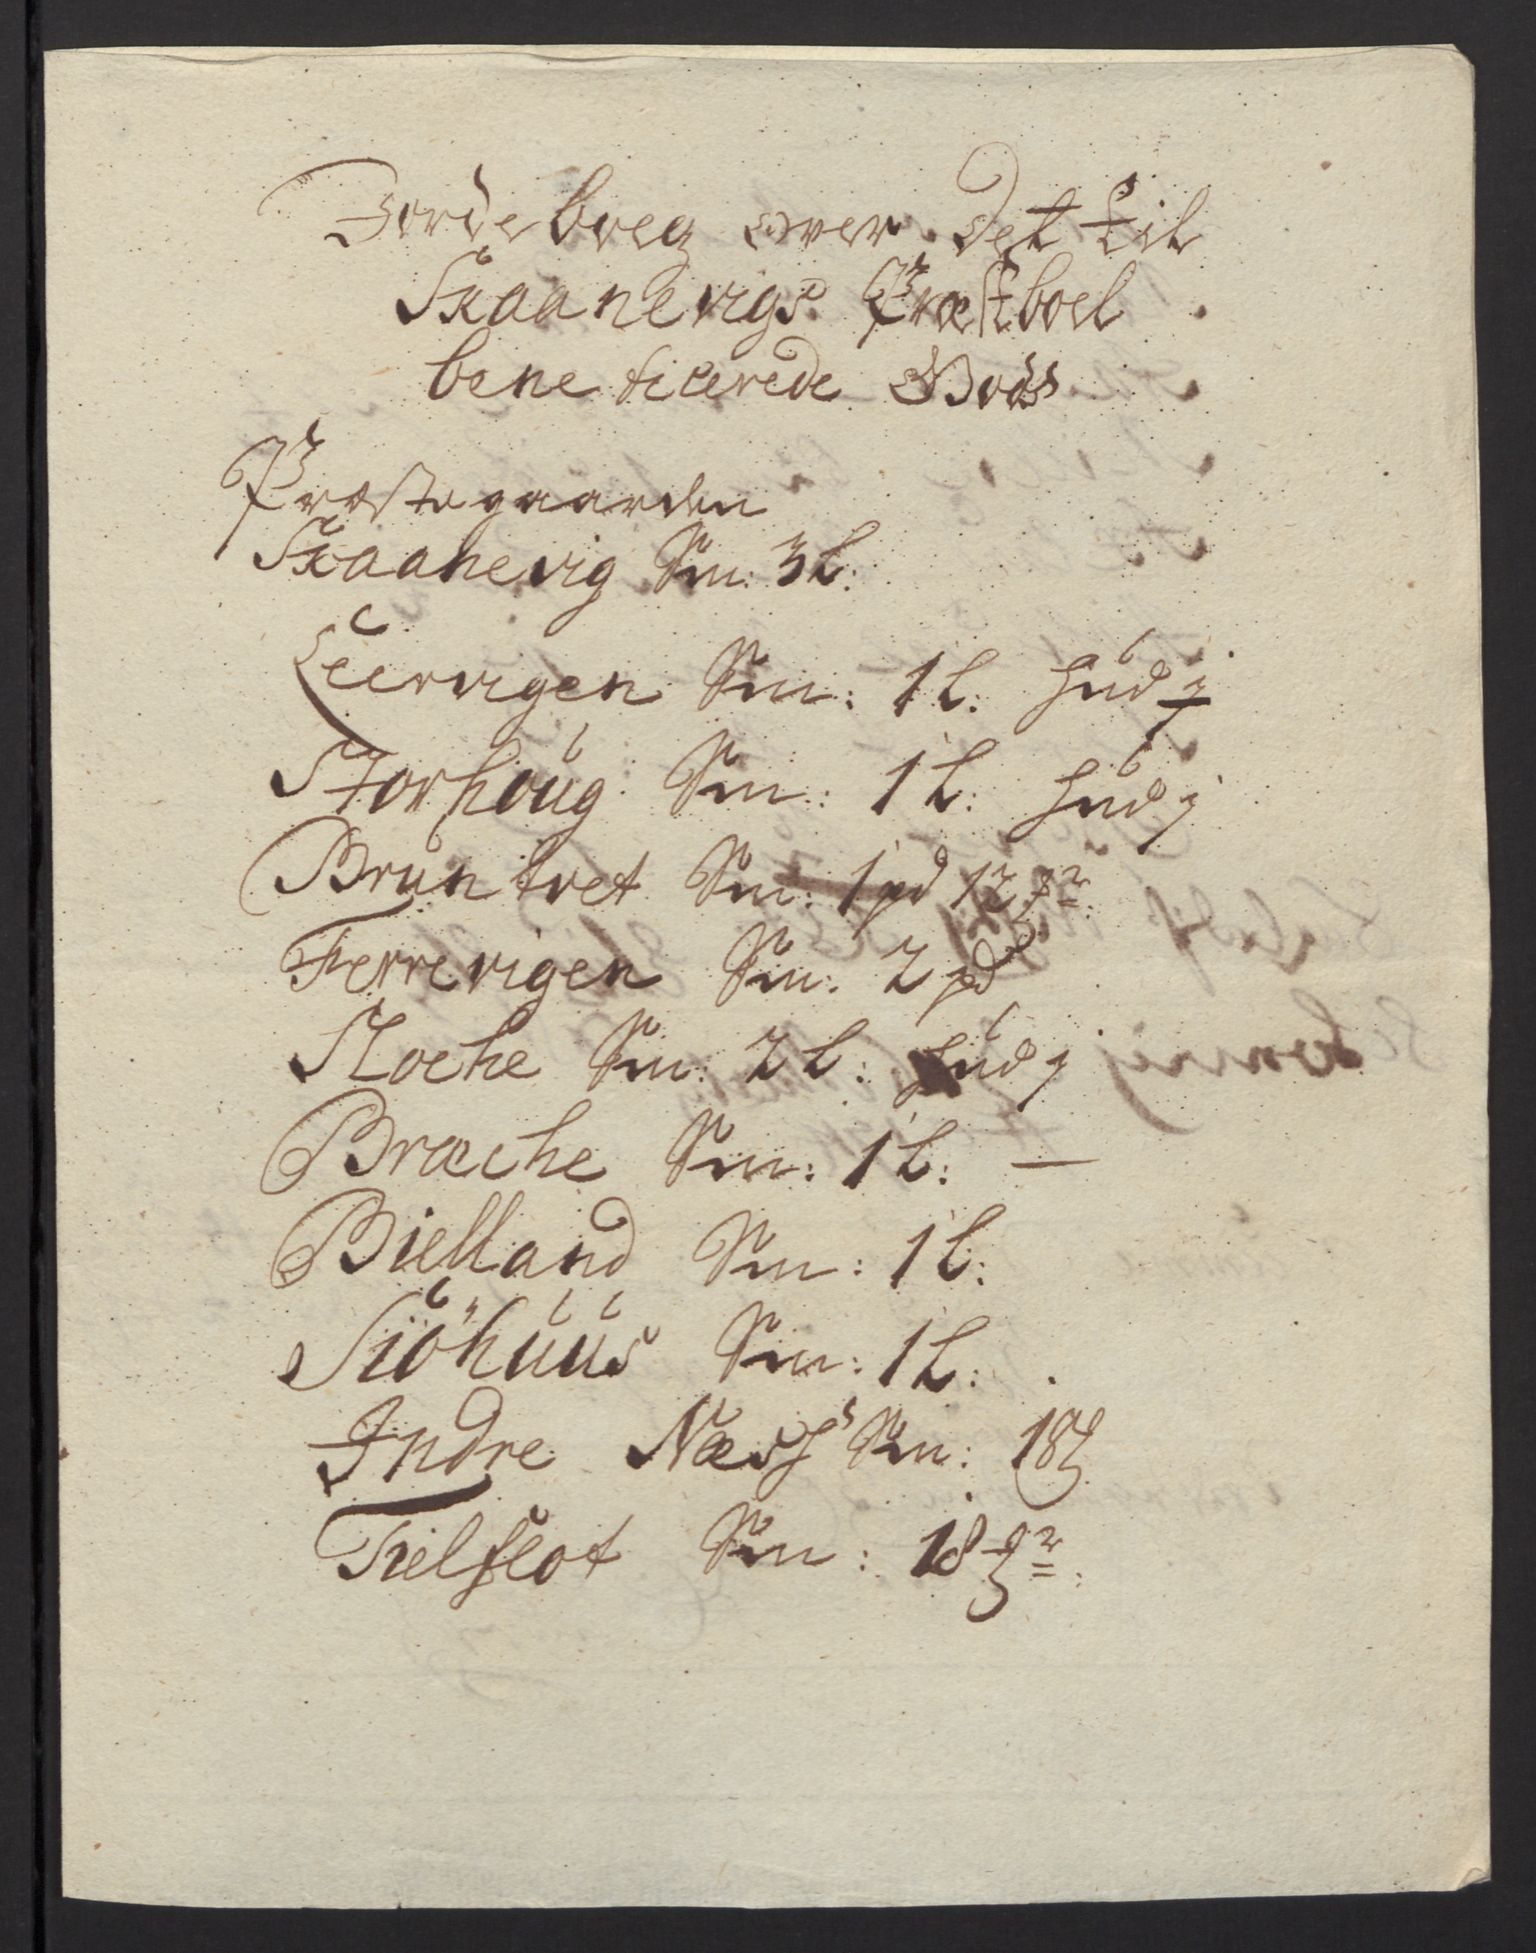 Jordeboeg over det til
Skaanevigs Præstboel
beneficerede Gods
Præstegaarden
Skaanevig Sm: 3 l:
Leervigen Sm: 1 l: hud j
Storhoug Sm: 1 l: hud j
Bruntvet Sm: 1 pd 12 mr:
Ferrevigen Sm: 2 pd
Moche Sm: 2 l: hud j
Bræche Sm: 1 l: —
Bielland Sm: 1 l:
Siöhuus Sm: 1 l:
Indre Næss Sm: 18
Tielflot Sm: 18 mr: